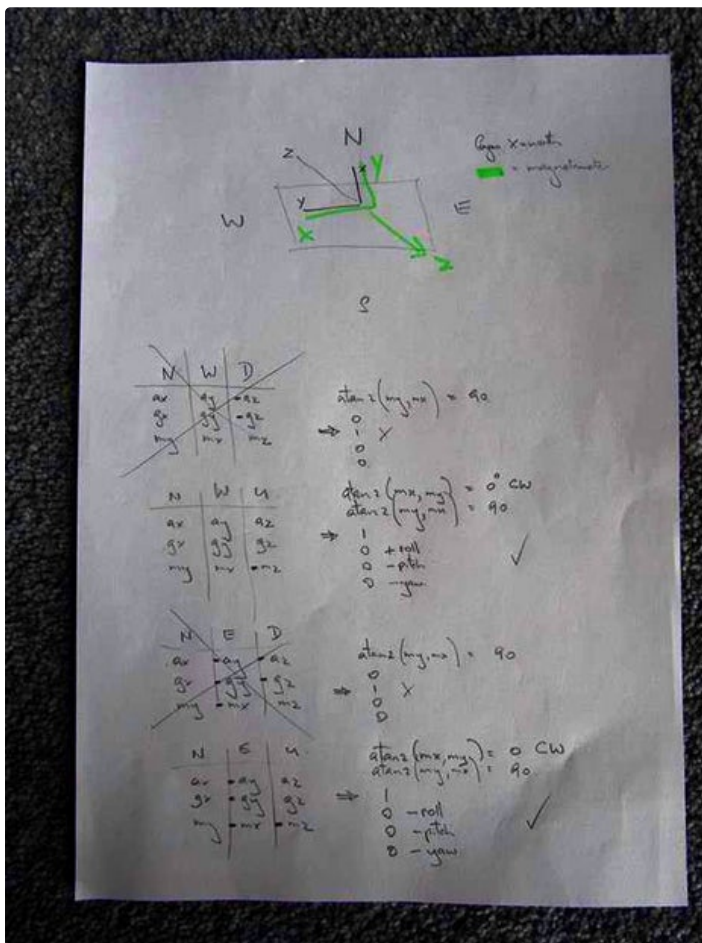 N
Z x y
y
W X E
= magnetometer
z
S
N | W | D
ax | ay | -az
gx | gy | -gz
my | mx | mz
atan2(my,mx) = 90
⇒
0
1 X
0
0
N | W | U
ax | ay | az
gx | gy | gz
my | mx | -mz
atan2(mx,my) = 0° CW
atan2(my,mx) = 90
⇒
1
0 + roll
0 - pitch
0 - yaw
✓
N | E | D
ax | -ay | -az
gx | -gy | -gz
my | -mx | mz
atan2(my,mx) = 90
⇒
0
1 X
0
0
N | E | U
ax | -ay | az
gx | -gy | gz
my | -mx | -mz
atan2(mx,my) = 0 CW
atan2(my,mx) = 90
⇒
1
0 - roll
0 - pitch
0 - yaw
✓